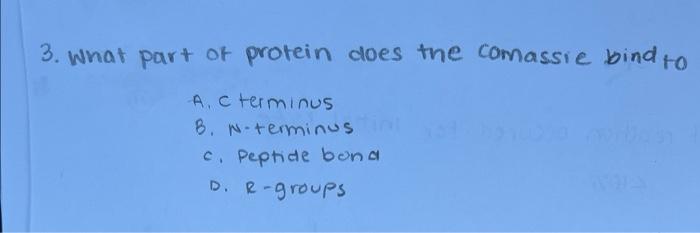 3. What part of protein does the comassie bind to
A. C terminus
B. N-terminus
C. Peptide bond
D. R-groups